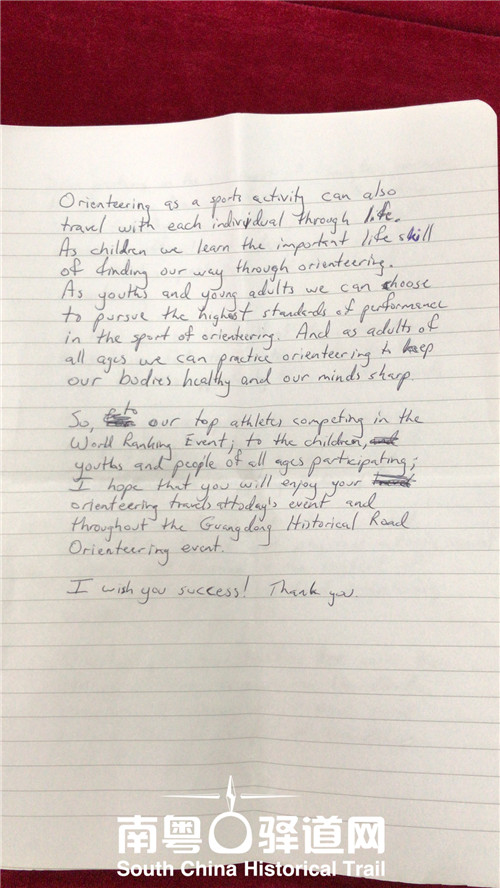 Orienteering as a sports activity can also
travel with each individual through life.
As children we learn the important life skill
of finding our way through orienteering.
As youths and young adults we can choose
to pursue the highest standards of performance
in the sport of orienteering. And as adults of
all ages we can practice orienteering to keep
our bodies healthy and our minds sharp.
So, to our top athletes competing in the
World Ranking Event; to the children,
youths and people of all ages participating;
I hope that you will enjoy your
orienteering travels at today's event and
throughout the Guangdong Historical Road
Orienteering event.
I wish you success! Thank you.
南粤驿道网
South China Historical Trail